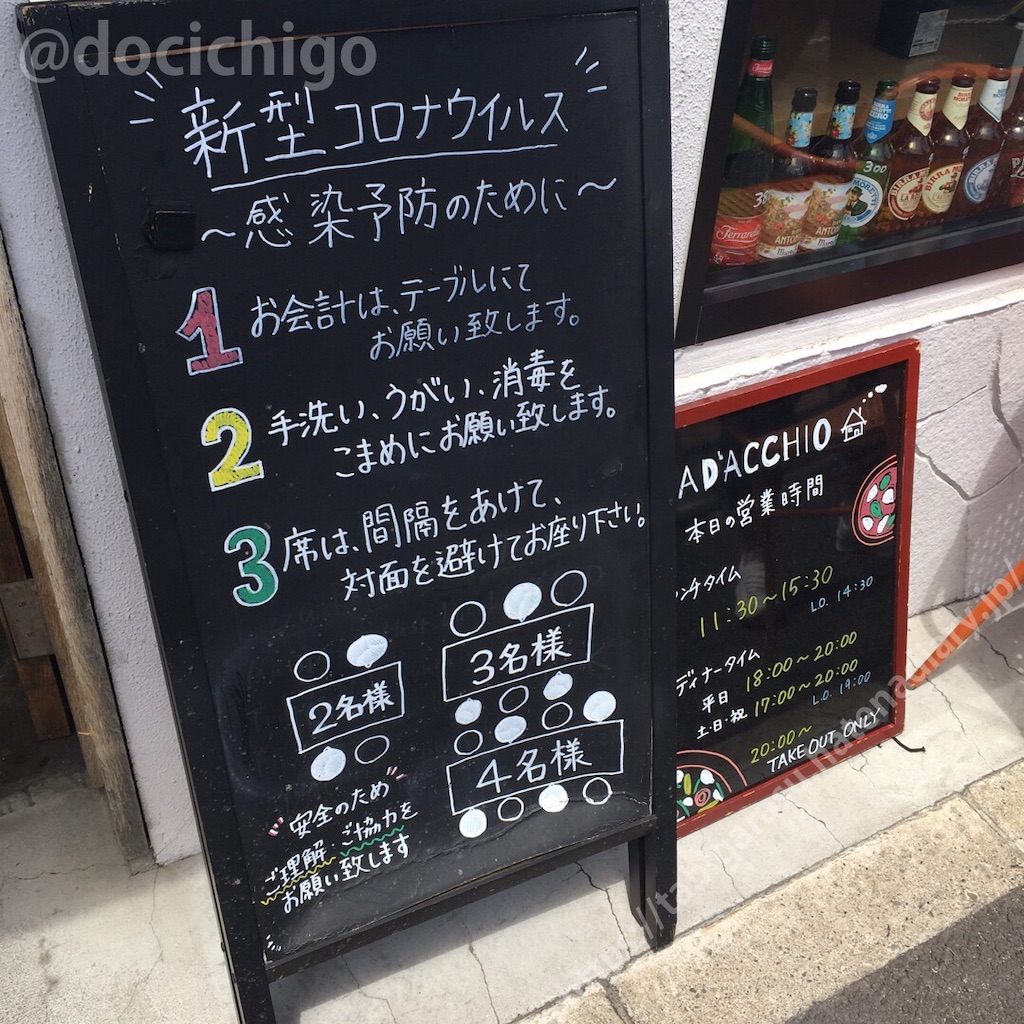 @docichigo
新型コロナウイルス
～感染予防のために～
1 お会計は、テーブルにて
お願い致します。
2 手洗い、うがい、消毒を
こまめにお願い致します。
3 席は、間隔をあけて、
対面を避けてお座り下さい。
2名様
3名様
4名様
安全のため
ご理解・ご協力を
お願い致します
AD'ACCHIO
本日の営業時間
ンチタイム
11:30～15:30
LO. 14:30
ディナータイム
平日 18:00～20:00
土・日・祝 17:00～20:00
L.O. 19:00
20:00～
TAKE OUT ONLY
300
Ferrarelle
BIRRA
MORETTI
ZERO